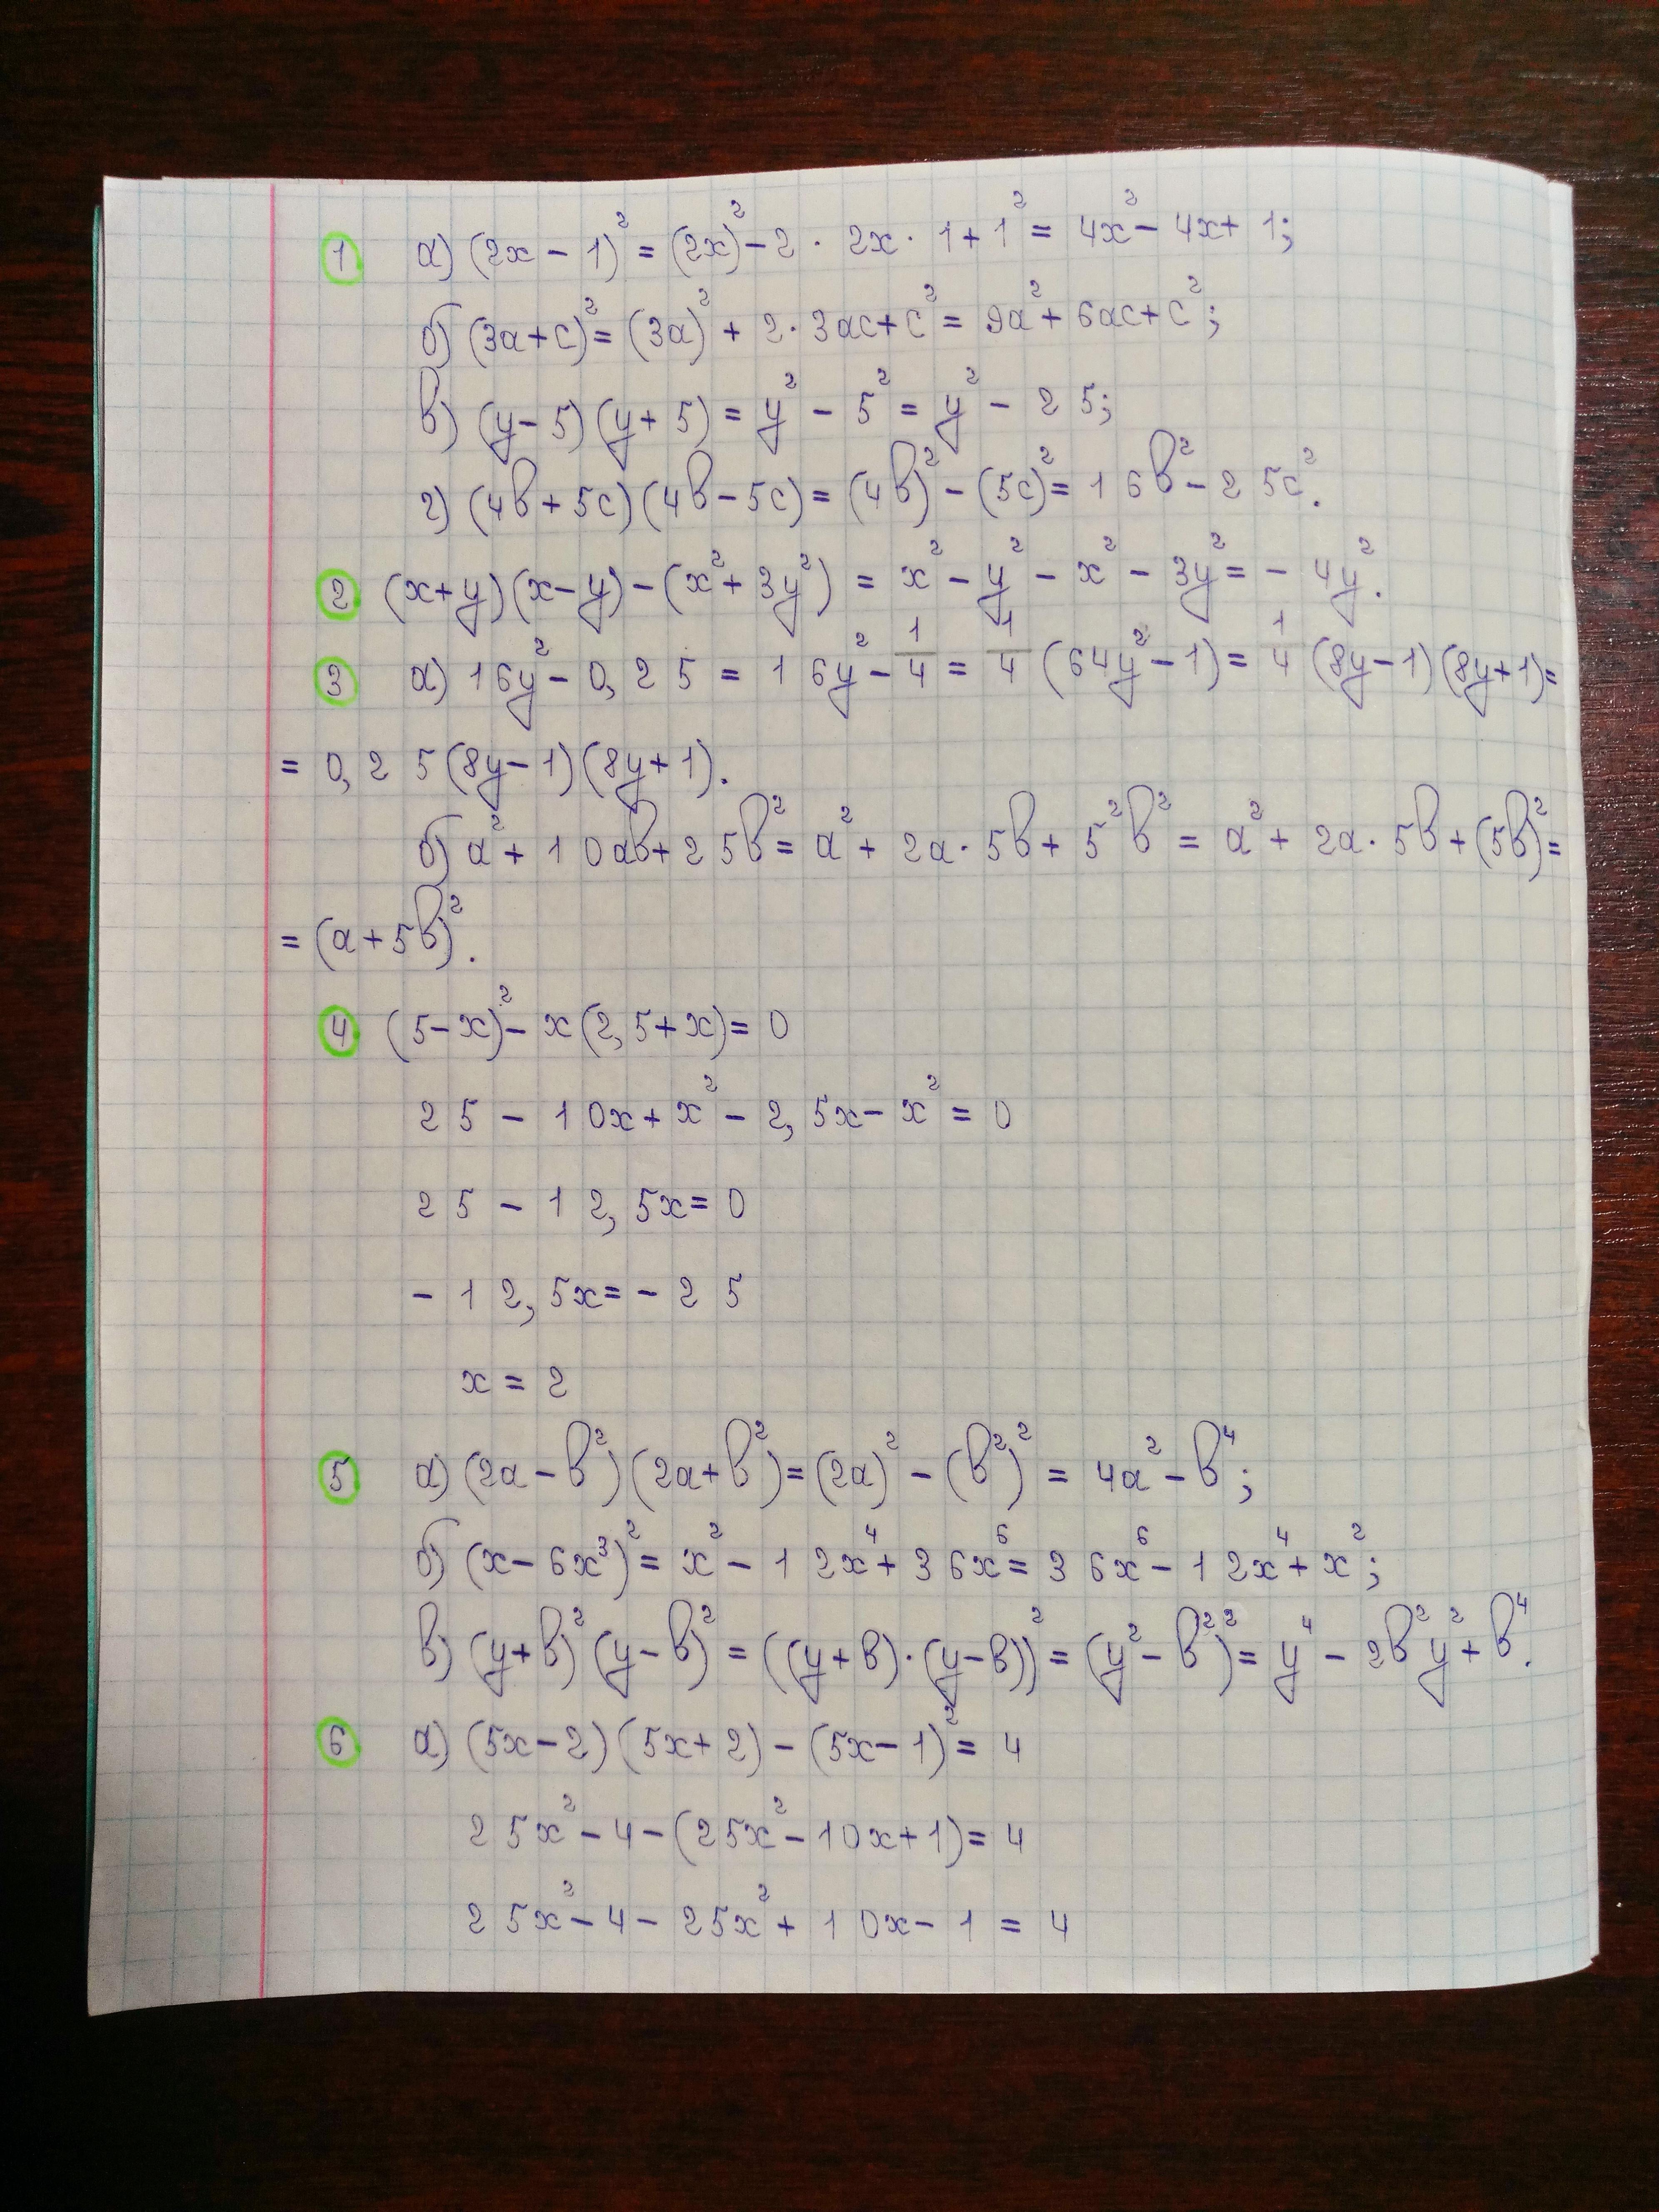 1 а) (2x - 1)² = (2x)² - 2 · 2x · 1 + 1² = 4x² - 4x + 1;
б) (3a + c)² = (3a)² + 2 · 3ac + c² = 9a² + 6ac + c²;
в) (y - 5)(y + 5) = y² - 5² = y² - 25;
г) (4b + 5c)(4b - 5c) = (4b)² - (5c)² = 16b² - 25c².
2 (x + y)(x - y) - (x² + 3y²) = x² - y² - x² - 3y² = - 4y².
3 а) 16y² - 0,25 = 16y² - 1/4 = 1/4 (64y² - 1) = 1/4 (8y - 1)(8y + 1) =
= 0,25(8y - 1)(8y + 1).
б) a² + 10ab + 25b² = a² + 2a · 5b + 5²b² = a² + 2a · 5b + (5b)² =
= (a + 5b)².
4 (5 - x)² - x(2,5 + x) = 0
25 - 10x + x² - 2,5x - x² = 0
25 - 12,5x = 0
- 12,5x = - 25
x = 2
5 а) (2a - b²)(2a + b²) = (2a)² - (b²)² = 4a² - b⁴;
б) (x - 6x³)² = x² - 12x⁴ + 36x⁶ = 36x⁶ - 12x⁴ + x²;
в) (y + b)²(y - b)² = ((y + b) · (y - b))² = (y² - b²)² = y⁴ - 2b²y² + b⁴.
6 а) (5x - 2)(5x + 2) - (5x - 1)² = 4
25x² - 4 - (25x² - 10x + 1) = 4
25x² - 4 - 25x² + 10x - 1 = 4